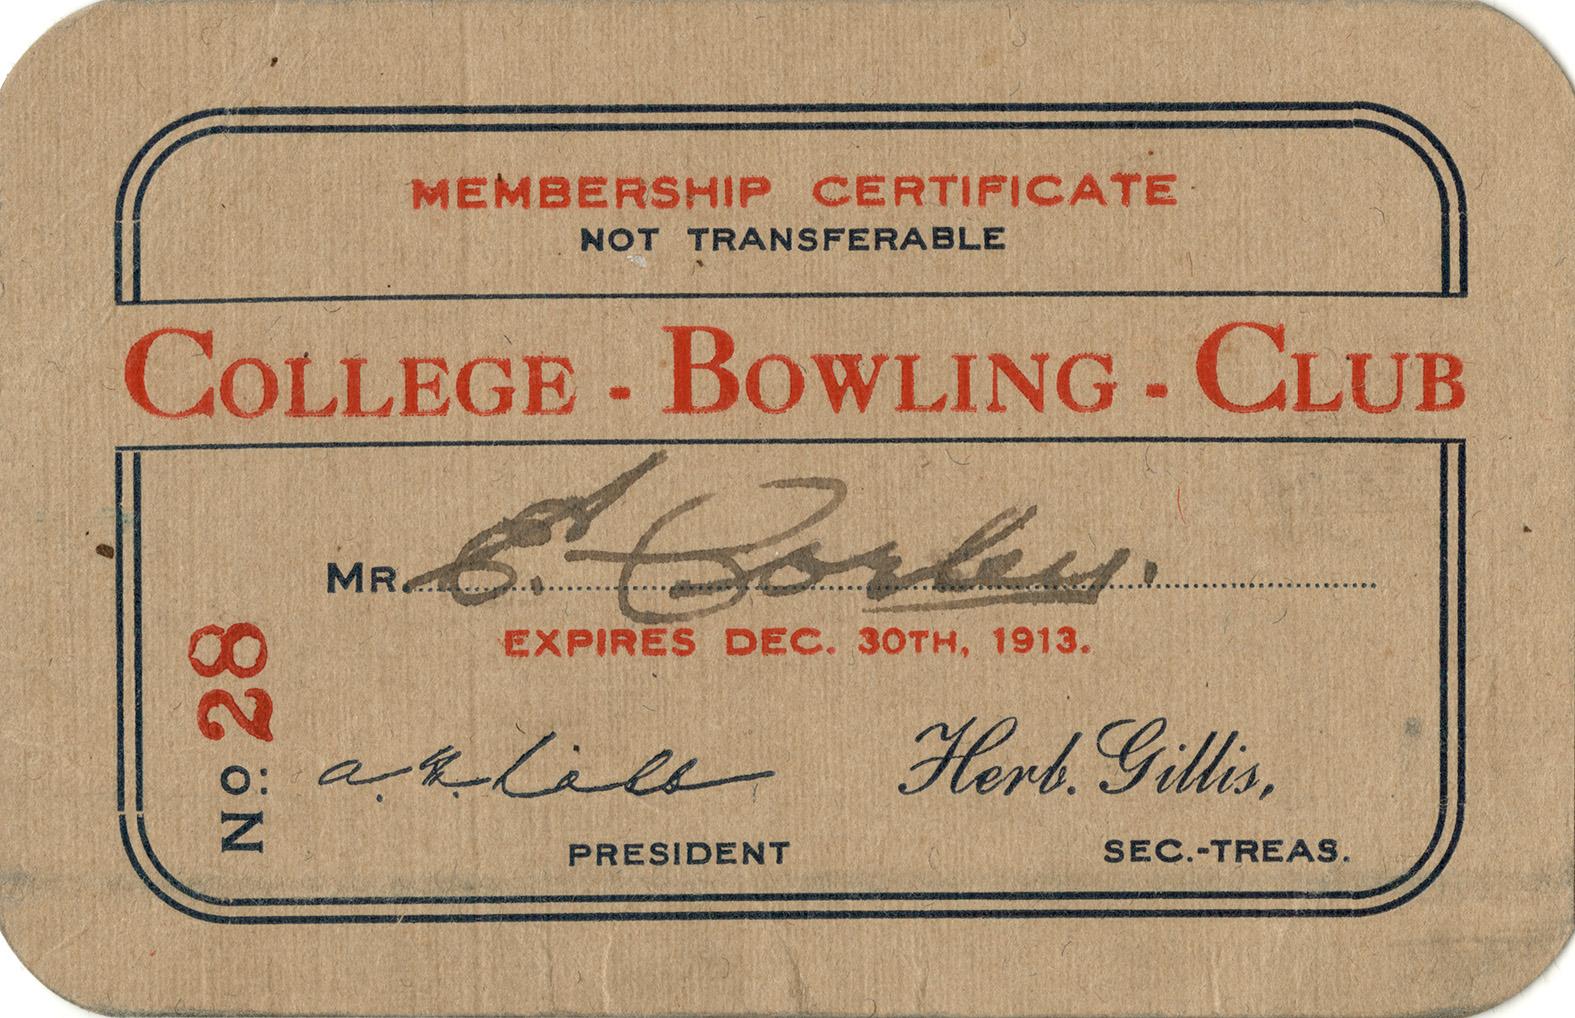 MEMBERSHIP CERTIFICATE
NOT TRANSFERABLE
COLLEGE - BOWLING - CLUB
MR. E. Corley.
EXPIRES DEC. 30TH, 1913.
No. 28
Herb. Gillis,
PRESIDENT SEC.-TREAS.